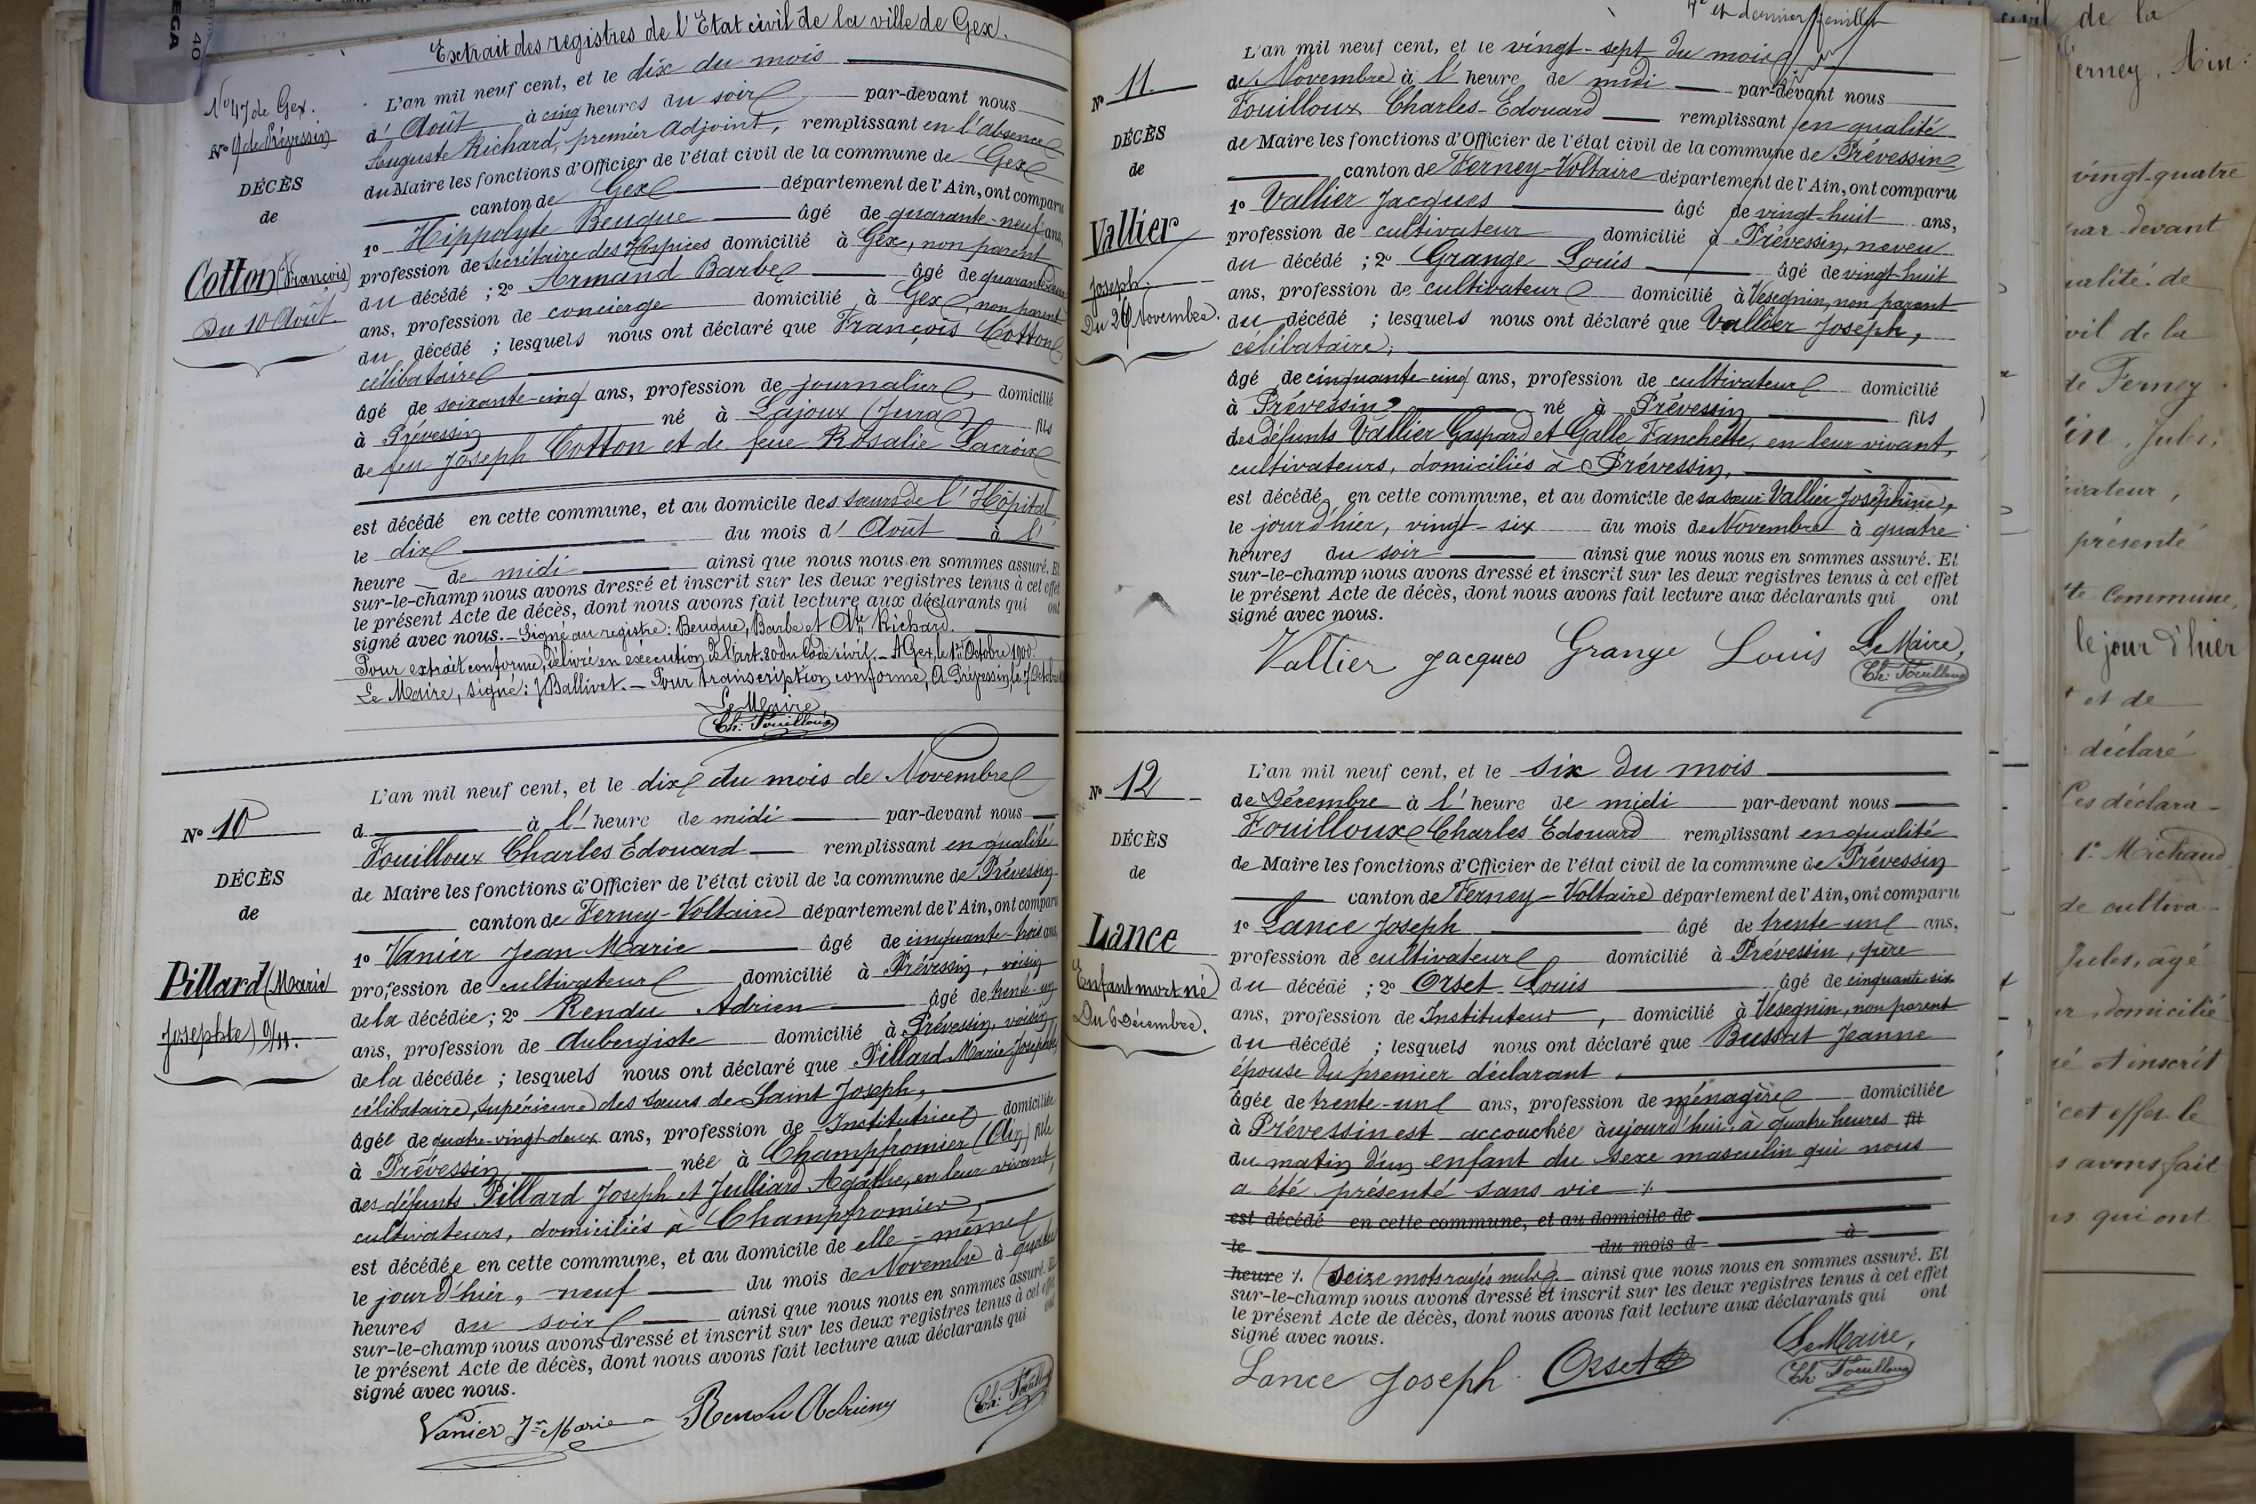 Extrait des registres de l'Etat civil de la ville de Gex.
No 47 de Gex.
No 9 de Prévessin
DÉCÈS
de
Cotton (François)
Du 10 Août.
L'an mil neuf cent, et le dix du mois
d' Août à cinq heures du soir par-devant nous
Auguste Richard, premier Adjoint, remplissant en l'absence
du Maire les fonctions d'Officier de l'état civil de la commune de Gex
canton de Gex département de l'Ain, ont comparu
1o Hippolyte Beugue âgé de quarante-neuf ans,
profession de Secrétaire des Hospices domicilié à Gex, non parent
du décédé ; 2o Armand Barbe âgé de quarante
ans, profession de concierge domicilié à Gex, non parent
du décédé ; lesquels nous ont déclaré que François Cotton
célibataire
âgé de soixante-cinq ans, profession de journalier domicilié
à Prévessin né à Lajoux (Jura) fils
de feu Joseph Cotton et de feue Rosalie Lacroix
est décédé en cette commune, et au domicile des sœurs de l'Hôpital,
le dix du mois d' Août à l'
heure de midi ainsi que nous nous en sommes assuré. Et
sur-le-champ nous avons dressé et inscrit sur les deux registres tenus à cet effet
le présent Acte de décès, dont nous avons fait lecture aux déclarants qui ont
signé avec nous. — Signé au registre : Beugue, Barbe et Richard.
Pour extrait conforme, délivré en exécution de l'art. 80 du Code civil. — A Gex, le 1er Octobre 1900.
Le Maire, signé : J Ballivet. — Pour transcription conforme, A Prévessin, le 7 Octobre
Le Maire,
Ch. Fouilloux
No 10
DÉCÈS
de
Pillard (Marie
Josephte) 9/11.
L'an mil neuf cent, et le dix du mois de Novembre
d à l' heure de midi par-devant nous
Fouilloux Charles Edouard remplissant en qualité
de Maire les fonctions d'Officier de l'état civil de la commune de Prévessin
canton de Ferney-Voltaire département de l'Ain, ont comparu
1o Vanier Jean Marie âgé de cinquante-trois ans,
profession de cultivateur domicilié à Prévessin, voisin
de la décédée ; 2o Rendu Adrien âgé de trente-un
ans, profession de Aubergiste domicilié à Prévessin, voisin
de la décédée ; lesquels nous ont déclaré que Pillard Marie Josephte,
célibataire, Supérieure des Sœurs de Saint Joseph,
âgée de quatre-vingt-deux ans, profession de Institutrice domiciliée
à Prévessin née à Champfromier (Ain) fille
des défunts Pillard Joseph et Julliard Agathe, en leur vivant,
cultivateurs, domiciliés à Champfromier,
est décédée en cette commune, et au domicile de elle-même
le jour d'hier, neuf du mois de Novembre à quatre
heures du soir ainsi que nous nous en sommes assuré. Et
sur-le-champ nous avons dressé et inscrit sur les deux registres tenus à cet effet
le présent Acte de décès, dont nous avons fait lecture aux déclarants qui ont
signé avec nous.
Vanier Jn Marie Rendu Adrien Ch. Fouilloux
4e et dernier feuillet
No 11
DÉCÈS
de
Vallier
Joseph.
Du 26 Novembre.
L'an mil neuf cent, et le vingt-sept du mois
de Novembre à l' heure de midi par-devant nous
Fouilloux Charles-Edouard remplissant en qualité
de Maire les fonctions d'Officier de l'état civil de la commune de Prévessin
canton de Ferney-Voltaire département de l'Ain, ont comparu
1o Vallier Jacques âgé de vingt-huit ans,
profession de cultivateur domicilié à Prévessin, neveu
du décédé ; 2o Grange Louis âgé de vingt-huit
ans, profession de cultivateur domicilié à Vesegnin, non parent
du décédé ; lesquels nous ont déclaré que Vallier Joseph,
célibataire,
âgé de cinquante-cinq ans, profession de cultivateur domicilié
à Prévessin, né à Prévessin fils
des défunts Vallier Gaspard et Galle Fanchette, en leur vivant,
cultivateurs, domiciliés à Prévessin,
est décédé en cette commune, et au domicile de sa sœur Vallier Joséphine,
le jour d'hier, vingt-six du mois de Novembre à quatre
heures du soir ainsi que nous nous en sommes assuré. Et
sur-le-champ nous avons dressé et inscrit sur les deux registres tenus à cet effet
le présent Acte de décès, dont nous avons fait lecture aux déclarants qui ont
signé avec nous.
Vallier Jacques Grange Louis Le Maire,
Ch. Fouilloux
No 12
DÉCÈS
de
Lance
Enfant mort né
Du 6 Décembre.
L'an mil neuf cent, et le six du mois
de Décembre à l' heure de midi par-devant nous
Fouilloux Charles Edouard remplissant en qualité
de Maire les fonctions d'Officier de l'état civil de la commune de Prévessin
canton de Ferney-Voltaire département de l'Ain, ont comparu
1o Lance Joseph âgé de trente-un ans,
profession de cultivateur domicilié à Prévessin, père
du décédé ; 2o Orset Louis âgé de cinquante-six
ans, profession de Instituteur, domicilié à Vesegnin, non parent
du décédé ; lesquels nous ont déclaré que Bussat Jeanne
épouse du premier déclarant,
âgée de trente-un ans, profession de ménagère domiciliée
à Prévessin est accouchée aujourd'hui à quatre heures fil
du matin d'un enfant du sexe masculin qui nous
a été présenté sans vie
est décédé en cette commune, et au domicile de
le du mois d à
heure (Seize mots rayés nuls). ainsi que nous nous en sommes assuré. Et
sur-le-champ nous avons dressé et inscrit sur les deux registres tenus à cet effet
le présent Acte de décès, dont nous avons fait lecture aux déclarants qui ont
signé avec nous.
Lance Joseph Orset Le Maire,
Ch Fouilloux
de la
erney, Ain:
vingt-quatre
par-devant
ualité de
ivil de la
de Ferney
in, Jules,
ivateur,
présenté
tte commune,
le jour d'hier
et de
déclaré
Ces déclara-
1o Michaud
de cultiva-
Jules, âgé
domicilié
et inscrit
cet effet le
s avons fait
s qui ont